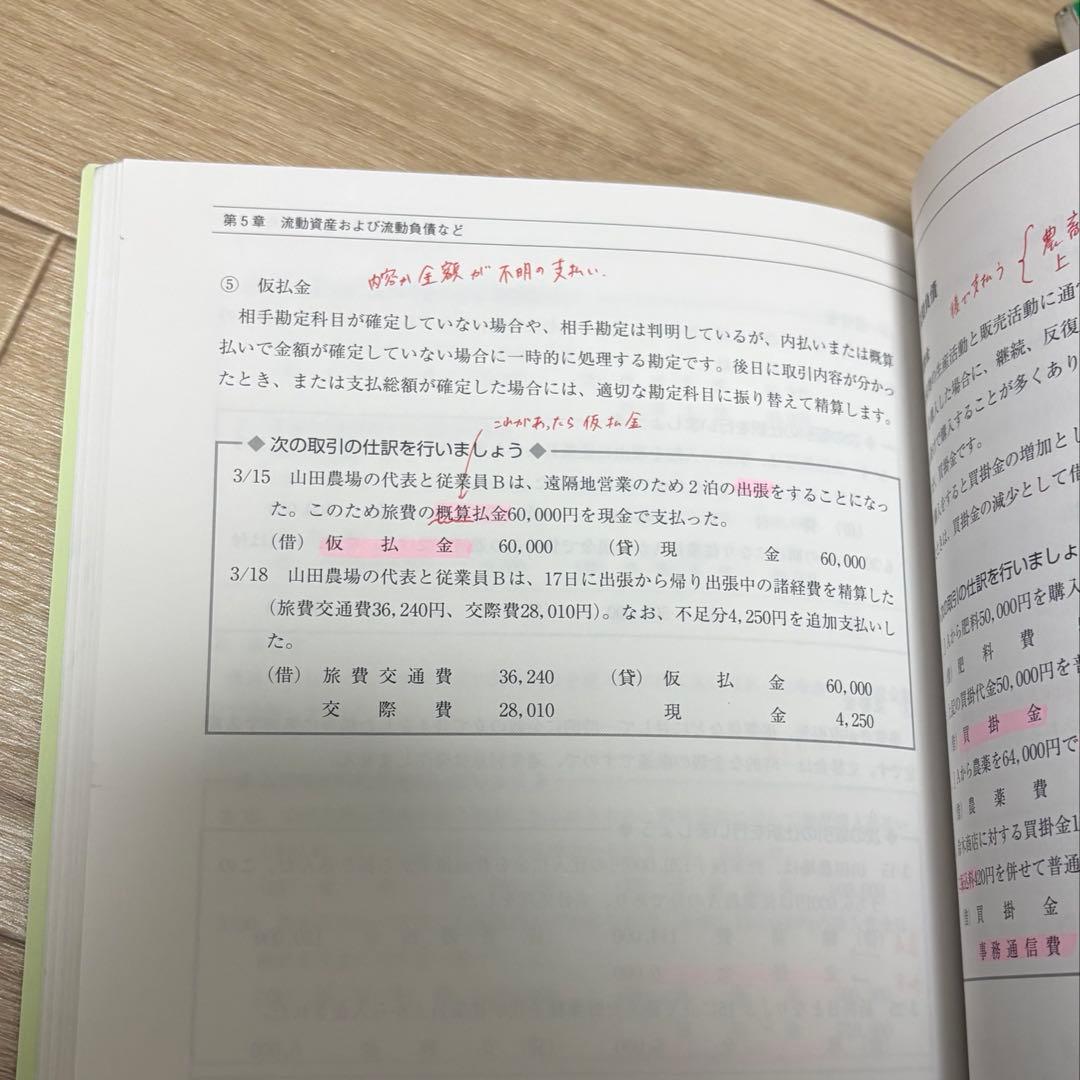 第5章 流動資産および流動負債など
⑤ 仮払金
内容か金額が不明の支払い.
相手勘定科目が確定していない場合や、相手勘定は判明しているが、内払いまたは概算
払いで金額が確定していない場合に一時的に処理する勘定です。後日に取引内容が分かっ
たとき、または支払総額が確定した場合には、適切な勘定科目に振り替えて精算します。
これがあったら仮払金
◆ 次の取引の仕訳を行いましょう ◆
3/15 山田農場の代表と従業員Bは、遠隔地営業のため2泊の出張をすることになっ
た。このため旅費の概算払金60,000円を現金で支払った。
(借) 仮払金 60,000 (貸) 現金 60,000
3/18 山田農場の代表と従業員Bは、17日に出張から帰り出張中の諸経費を精算した
(旅費交通費36,240円、交際費28,010円)。なお、不足分4,250円を追加支払いし
た。
(借) 旅費交通費 36,240 (貸) 仮払金 60,000
交際費 28,010 現金 4,250
後で支払う { 農畜
上
負債
生産活動と販売活動に通
購入した場合に、継続、反復
で購入することが多くあり
買掛金です。
をすると買掛金の増加とし
は、買掛金の減少として借
の取引の仕訳を行いましょ
Aから肥料50,000円を購入
肥料費
の買掛代金50,000円を普
買掛金
Aから農薬を64,000円で
農薬費
商店に対する買掛金1
料420円を併せて普通
買掛金
事務通信費